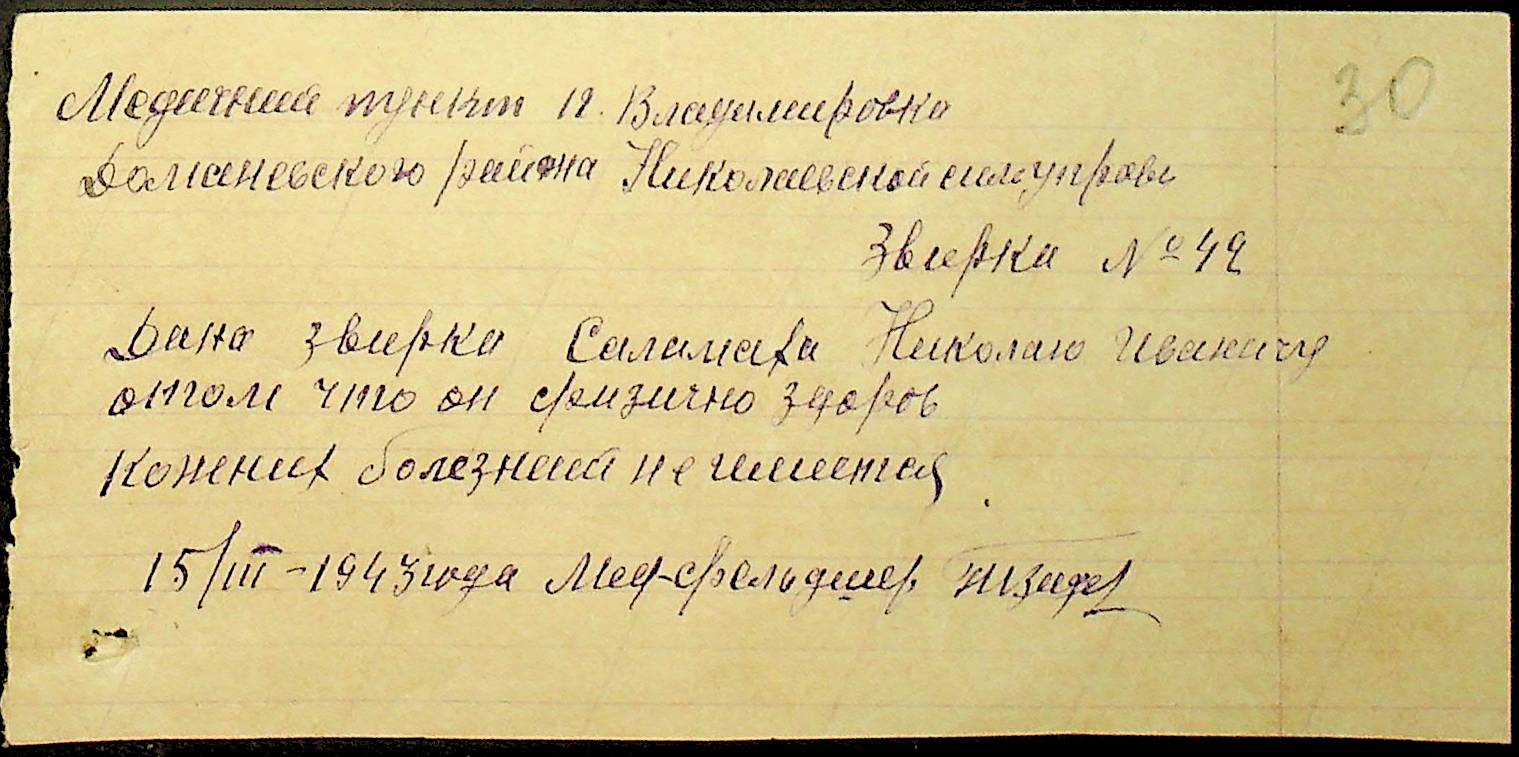 30
Медичний пункт н. Владимировка
Доманевского района Николаевской
Звирка № 49
Дана звирка Саламаха Николаю Ивановичу
отом что он физично здоров
Кожних болезний не имиется
15/III – 1943 года Мед-фельдшер